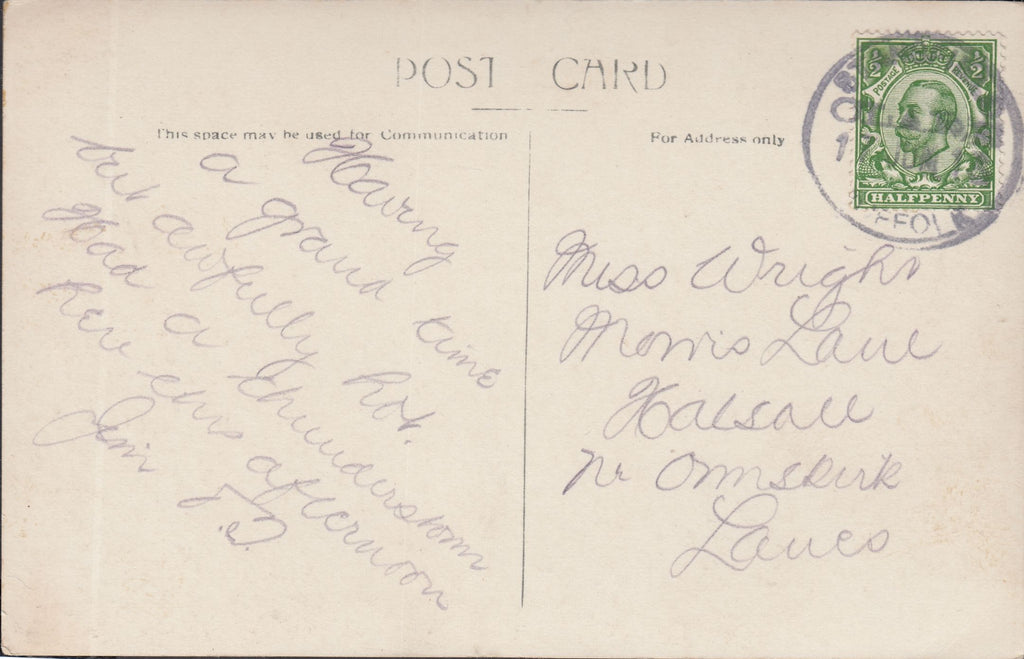 POST CARD
This space may be used for Communication
For Address only
½ ½
POSTAGE REVENUE
HALFPENNY
Having
a grand time
but awfully hot.
Had a thunderstorm
here this afternoon
Jim
Miss Wright
Morris Lane
Halsall
Nr Ormskirk
Lancs